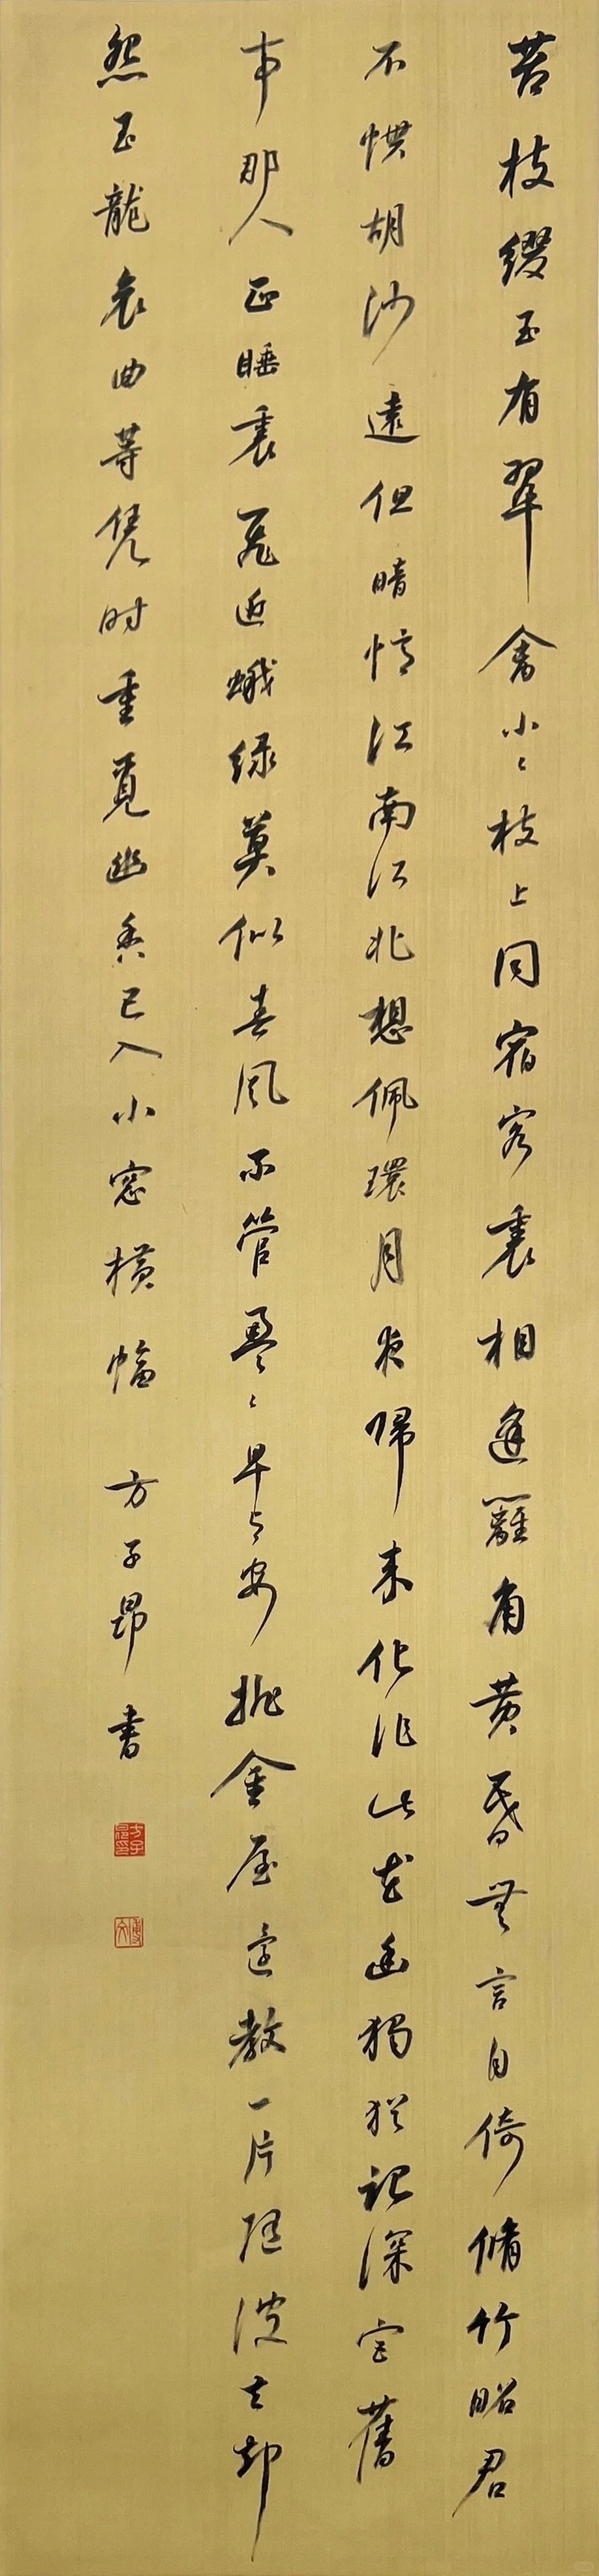 苔枝綴玉有翠禽小〻枝上同宿客裏相逢籬角黄昏無言自倚脩竹昭君
不慣胡沙遠但暗憶江南江北想佩環月夜歸来化作此花幽獨猶記深宫舊
事那人正睡裏飛近蛾緑莫似春風不管盈〻早与安排金屋還教一片随波去却
怨玉龍哀曲等凭时重覓幽香已入小窓横幅 方子昂書
方子昂印